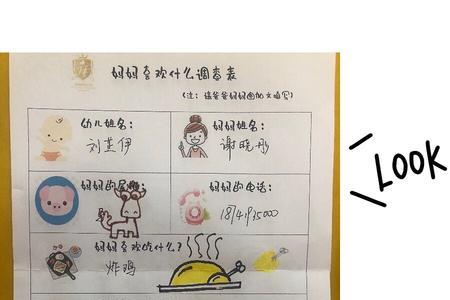 妈妈喜欢什么调查表
(注：请爸爸妈妈图加文填写)
幼儿姓名：
妈妈姓名：
谢晓彤
妈妈的属相：
妈妈的电话：
妈妈喜欢吃什么？
炸鸡
LOOK